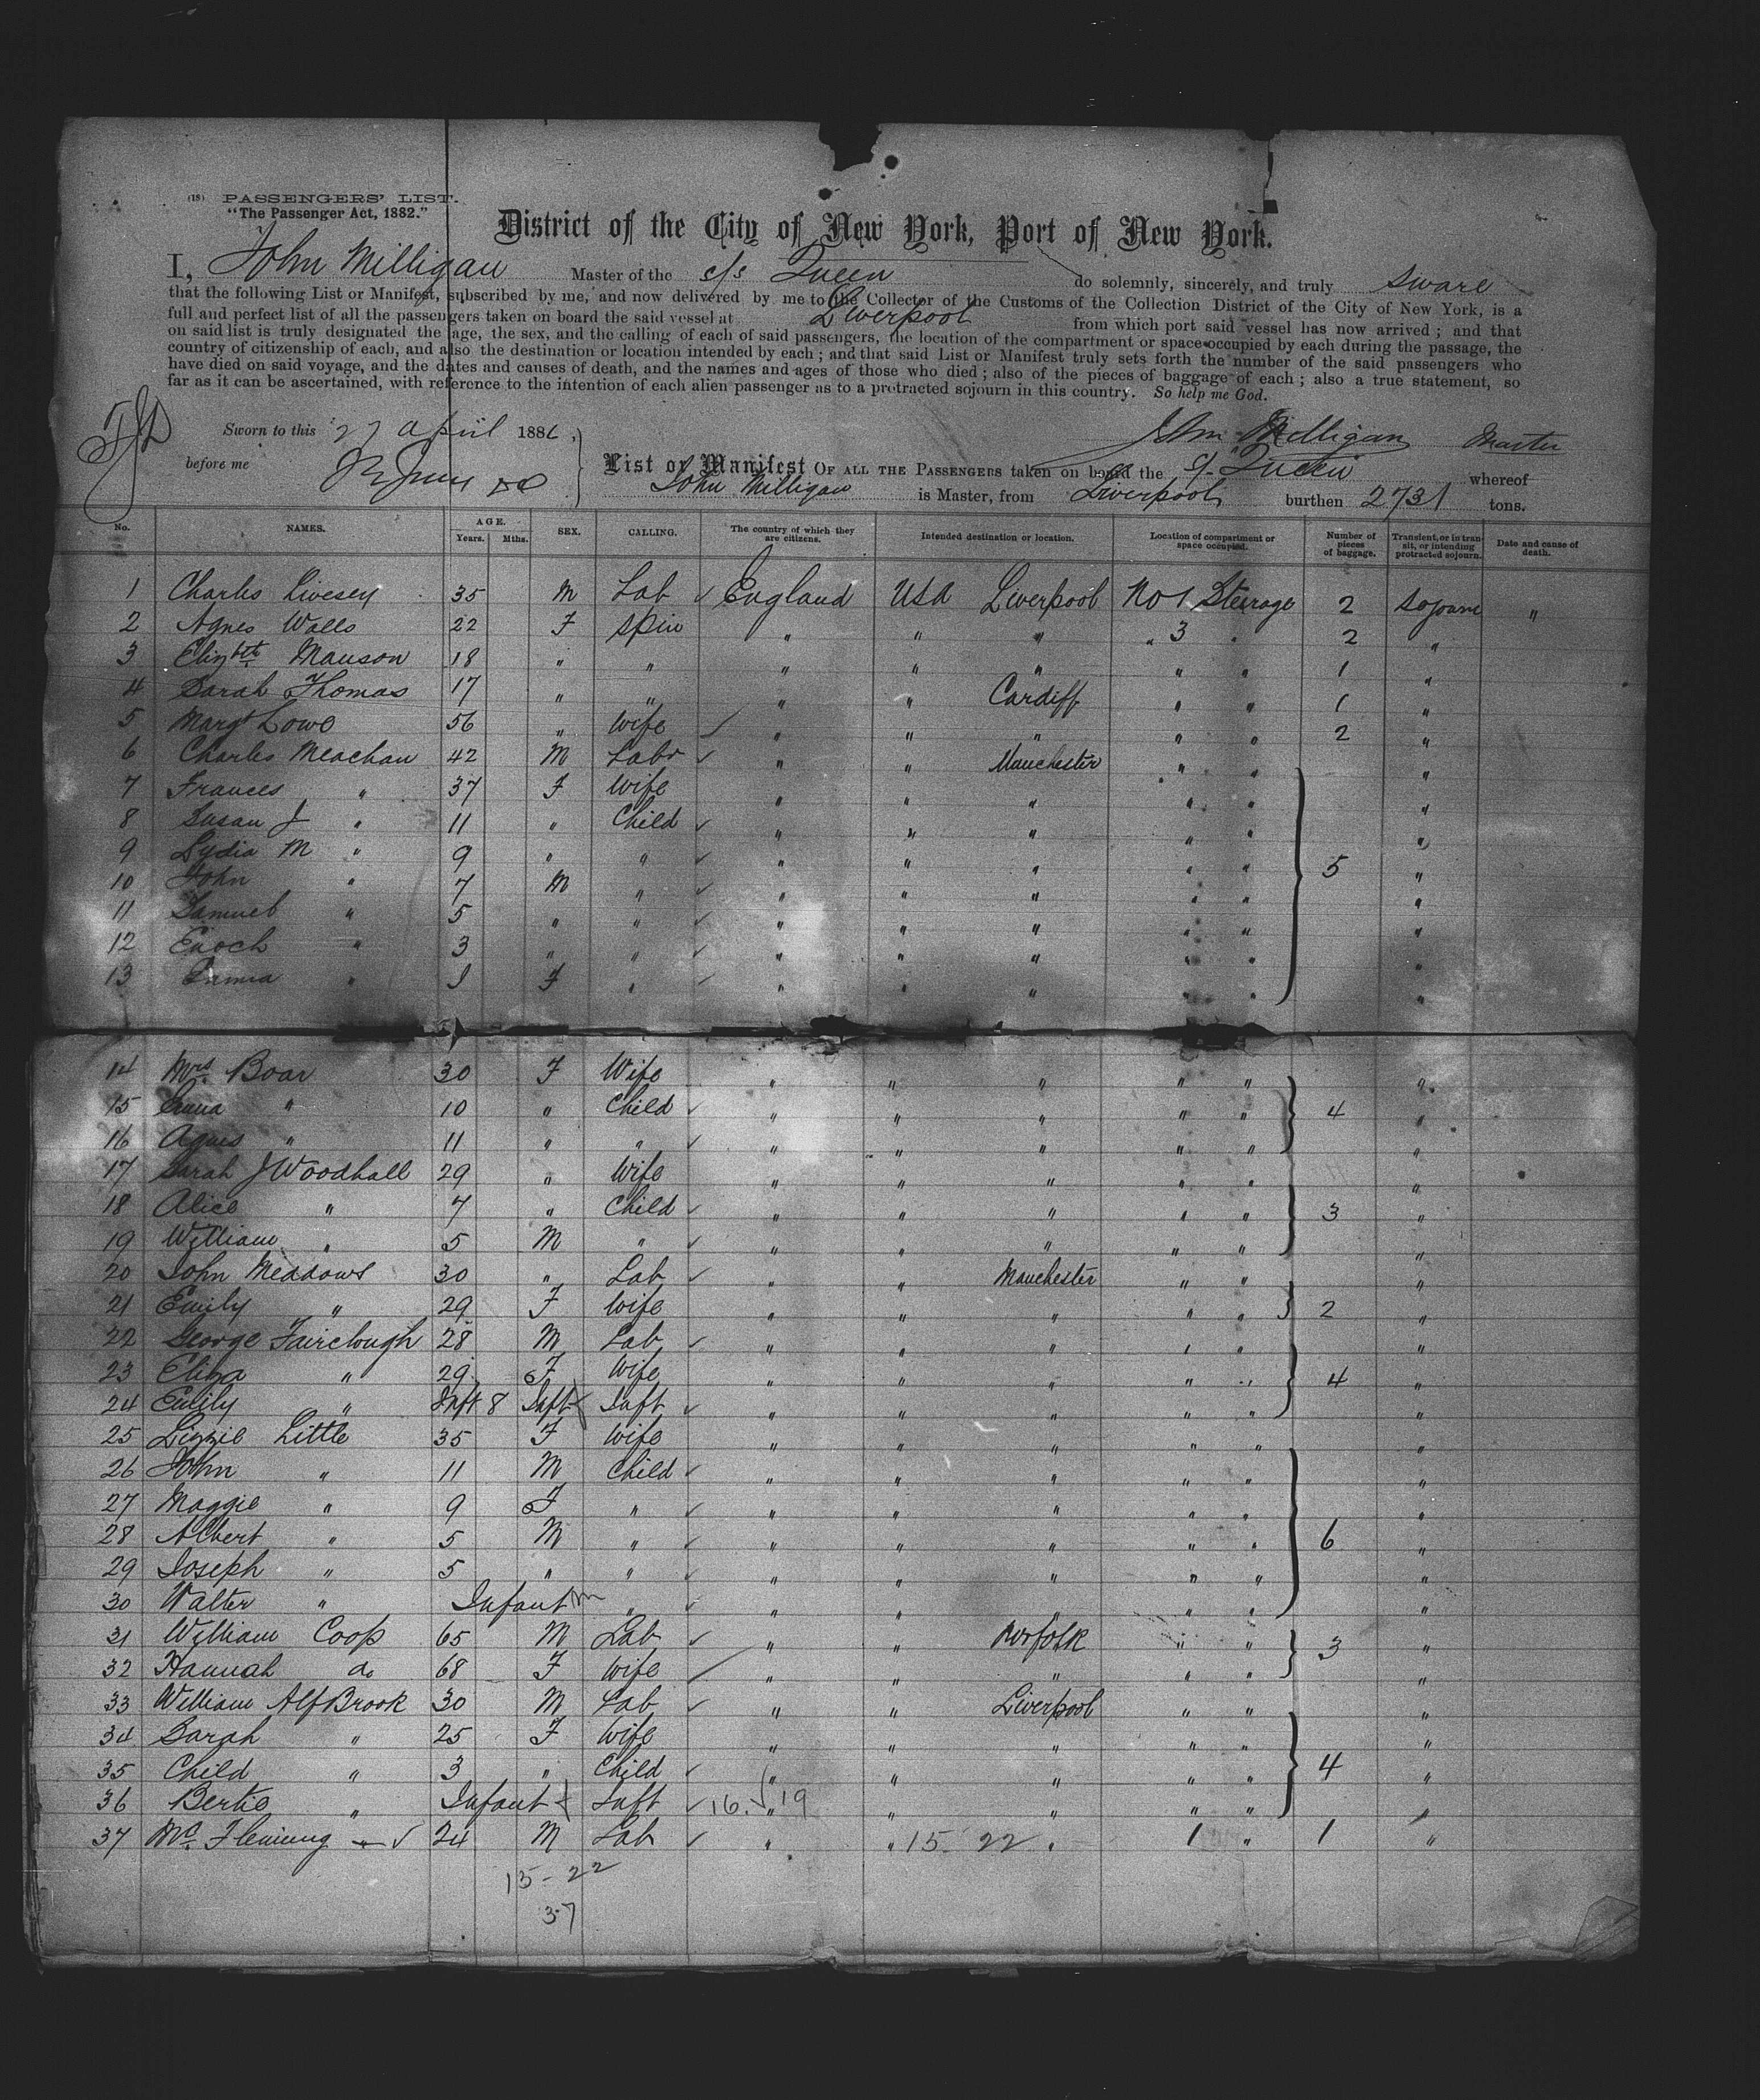 (18) PASSENGERS' LIST.
"The Passenger Act, 1882."
District of the City of New York, Port of New York.
I, John Milligan Master of the s/s Queen do solemnly, sincerely, and truly sware
that the following List or Manifest, subscribed by me, and now delivered by me to the Collector of the Customs of the Collection District of the City of New York, is a
full and perfect list of all the passengers taken on board the said vessel at Liverpool from which port said vessel has now arrived; and that
on said list is truly designated the age, the sex, and the calling of each of said passengers, the location of the compartment or space occupied by each during the passage, the
country of citizenship of each, and also the destination or location intended by each; and that said List or Manifest truly sets forth the number of the said passengers who
have died on said voyage, and the dates and causes of death, and the names and ages of those who died; also of the pieces of baggage of each; also a true statement, so
far as it can be ascertained, with reference to the intention of each alien passenger as to a protracted sojourn in this country. So help me God.
Sworn to this 27 April 1886, John Milligan Master
before me
List or Manifest OF ALL THE PASSENGERS taken on board the s/s Queen whereof
John Milligan is Master, from Liverpool burthen 2731 tons.
No. NAMES. AGE. Years. Mths. SEX. CALLING. The country of which they are citizens. Intended destination or location. Location of compartment or space occupied. Number of pieces of baggage. Transient, or in transit, or intending protracted sojourn. Date and cause of death.
1 Charles Livesey 35 M Lab ✓ England USA Liverpool No 1 Steerage 2 Sojourn "
2 Agnes Walls 22 F Spin " " " " 3 " 2 "
3 Elizbth Manson 18 " " " " " " " 1 "
4 Sarah Thomas 17 " " " " Cardiff " " 1 "
5 Margt Lowe 56 " Wife ✓ " " " " " 2 "
6 Charles Meachan 42 M Labr ✓ " " Manchester " " "
7 Frances " 37 F Wife " " " " " "
8 Susan J " 11 " Child ✓ " " " " " "
9 Lydia M " 9 " " ✓ " " " " " 5 "
10 John " 7 M " ✓ " " " " " "
11 Samuel " 5 " " ✓ " " " " " "
12 Enoch " 3 " " ✓ " " " " " "
13 " 1 F " ✓ " " " " " "
14 Mrs Boar 30 F Wife " " " " " "
15 " 10 " Child ✓ " " " " " 4 "
16 Agnes " 11 " " ✓ " " " " " "
17 Sarah J Woodhall 29 " Wife " " " " " "
18 Alice " 7 " Child ✓ " " " " " 3 "
19 William " 5 M " ✓ " " " " " "
20 John Meadows 30 " Lab ✓ " " Manchester " " "
21 Emily " 29 F Wife " " " " " 2 "
22 George Fairclough 28 M Lab ✓ " " " " " "
23 Eliza " 29 F Wife " " " " " 4 "
24 " Inft 8 Inft Inft ✓ " " " " " "
25 Lizzie Little 35 F Wife " " " " " "
26 John " 11 M Child ✓ " " " " " "
27 Maggie " 9 F " ✓ " " " " " "
28 Albert " 5 M " ✓ " " " " " 6 "
29 Joseph " 5 " " ✓ " " " " " "
30 Walter " Infant m " ✓ " " " " " "
31 William Coop 65 M Lab ✓ " " Norfolk " " 3 "
32 Hannah do 68 F Wife " " " " " "
33 William Alf Brook 30 M Lab ✓ " " Liverpool " " "
34 Sarah " 25 F Wife " " " " " "
35 Child " 3 " Child ✓ " " " " " 4 "
36 Bertie " Infant Inft ✓ 16. 19 " " " " " "
37 Mc Fleming ✓ 24 M Lab ✓ " " 15-22 " 1 " 1 "
15-22
37